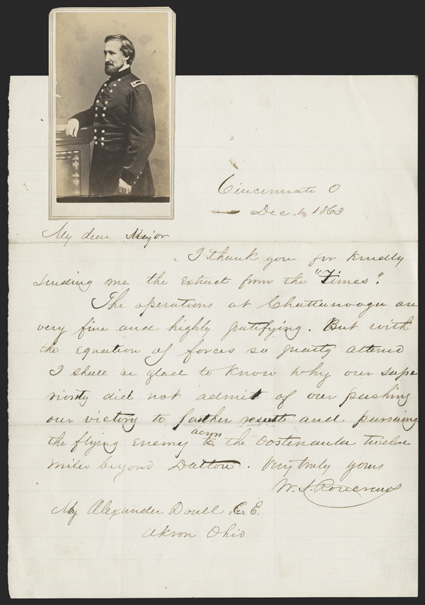 Cincinnati O
Dec. 6 1863
My dear Major
I thank you for kindly
sending me the extract from the "Times".
The operations at Chattanooga are
very fine and highly gratifying. But with
the equation of forces so greatly altered
I shall be glad to know why our supe
riority did not admit of our pushing
our victory to farther results and pursuing
the flying enemy across the Oostenaula twelve
miles beyond Dalton. Very truly yours
W. S. Rosecrans
Maj Alexander Doull C. E.
Akron Ohio